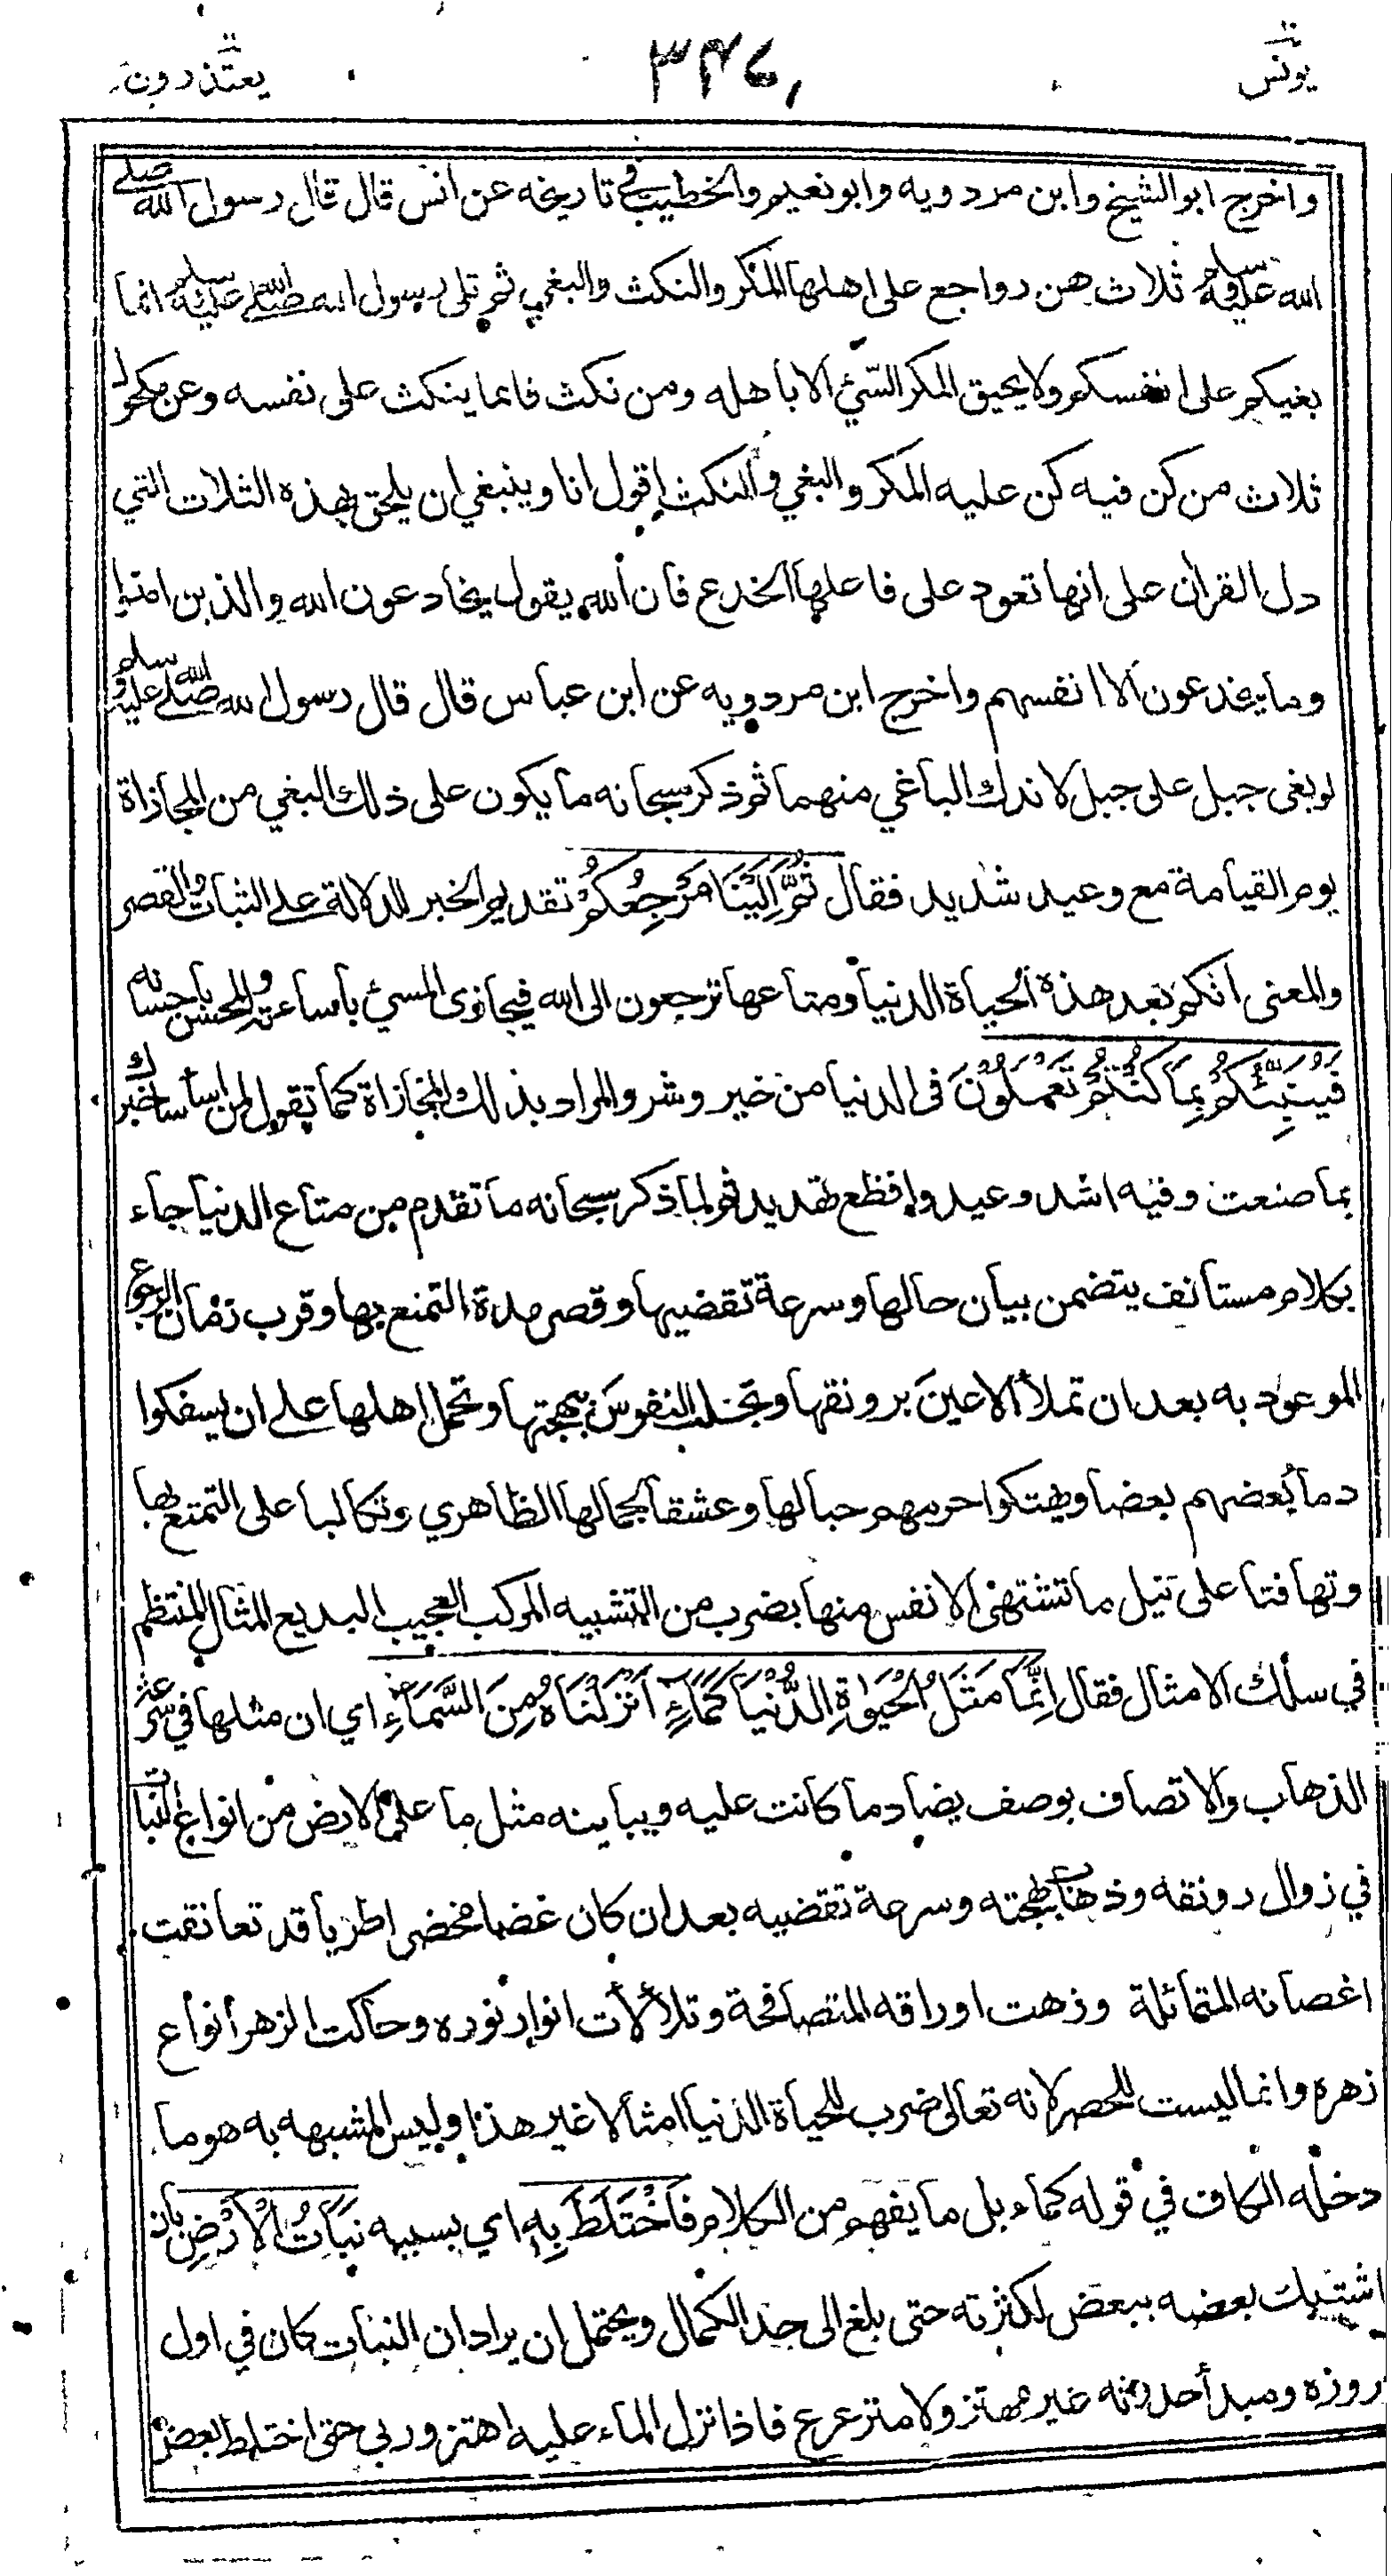 يونس ١٠
٣٤٧
يعتذرون ١١
واخرج ابو الشيخ وابن مردويه وابو نعيم والخطيب في تاريخه عن انس قال قال رسول الله صلى
الله عليه وسلم ثلاث هن رواجع على اهلها المكر والنكث والبغي ثم تلى رسول الله صلى الله عليه وسلم انما
بغيكم على انفسكم ولا يحيق المكر السيئ الا باهله ومن نكث فانما ينكث على نفسه وعن مكحول
ثلاث من كن فيه كن عليه المكر والبغي والنكث اقول انا وينبغي ان يلحق بهذه الثلاث التي
دل القرآن على انها تعود على فاعلها الخدع فان الله يقول يخادعون الله والذين امنوا
وما يخدعون الا انفسهم واخرج ابن مردويه عن ابن عباس قال قال رسول الله صلى الله عليه وسلم
لو بغى جبل على جبل لاندك الباغي منهما ثم ذكر سبحانه ما يكون على ذلك البغي من المجازاة
يوم القيامة مع وعيد شديد فقال ثُمَّ إِلَيْنَا مَرْجِعُكُمْ تقديم الخبر للدلالة على الثبات والقصر
والمعنى انكم بعد هذه الحياة الدنيا ومتاعها ترجعون الى الله فيجازى المسيئ باساءته والمحسن باحسانه
فَيُنَبِّئُكُمْ بِمَا كُنْتُمْ تَعْمَلُونَ فى الدنيا من خير وشر والمراد بذلك المجازاة كما تقول لمن اساء ساخبرك
بما صنعت وفيه اشد وعيد وافظع تهديد ثم لما ذكر سبحانه ما تقدم من متاع الدنيا جاء
بكلام مستانف يتضمن بيان حالها وسرعة تقضيها وقصر مدة التمتع بها وقرب زمان الرجوع
الموعود به بعد ان تملأ الاعين برونقها وتجتلب النفوس ببهجتها وتحمل اهلها على ان يسفكوا
دما بعضهم بعضا ويهتكوا حرمهم حبا لها وعشقا لجمالها الظاهري وتكالبا على التمتع بها
وتهافتا على نيل ما تشتهى الانفس منها بضرب من التشبيه المركب العجيب البديع المثال المنتظم
في سلك الامثال فقال إِنَّمَا مَثَلُ الْحَيٰوةِ الدُّنْيَا كَمَاءٍ أَنْزَلْنَاهُ مِنَ السَّمَاءِ اي ان مثلها في سرعة
الذهاب والاتصاف بوصف يضاد ما كانت عليه ويباينه مثل ما على الارض من انواع النبات
في زوال رونقه وذهاب بهجته وسرعة تقضيه بعد ان كان غضا مخضرا طريا قد تعانقت
اغصانه المتمائلة وزهت اوراقه المتصافحة وتلألأت انوار نوره وحاكت الزهر انواع
زهره وانما ليست للحصر لانه تعالى ضرب للحياة الدنيا امثالا غير هذا وليس المشبه به هو ما
دخله الكاف في قوله كماء بل ما يفهم من الكلام فَاخْتَلَطَ بِهِ اي بسببه نَبَاتُ الْأَرْضِ بان
اشتبك بعضه ببعض لكثرته حتى بلغ الى حد الكمال ويحتمل ان يراد ان النبات كان في اول
بروزه ومبدأ حدوثه غير مهتز ولا مترعرع فاذا نزل الماء عليه اهتز وربى حتى اختلط بعض